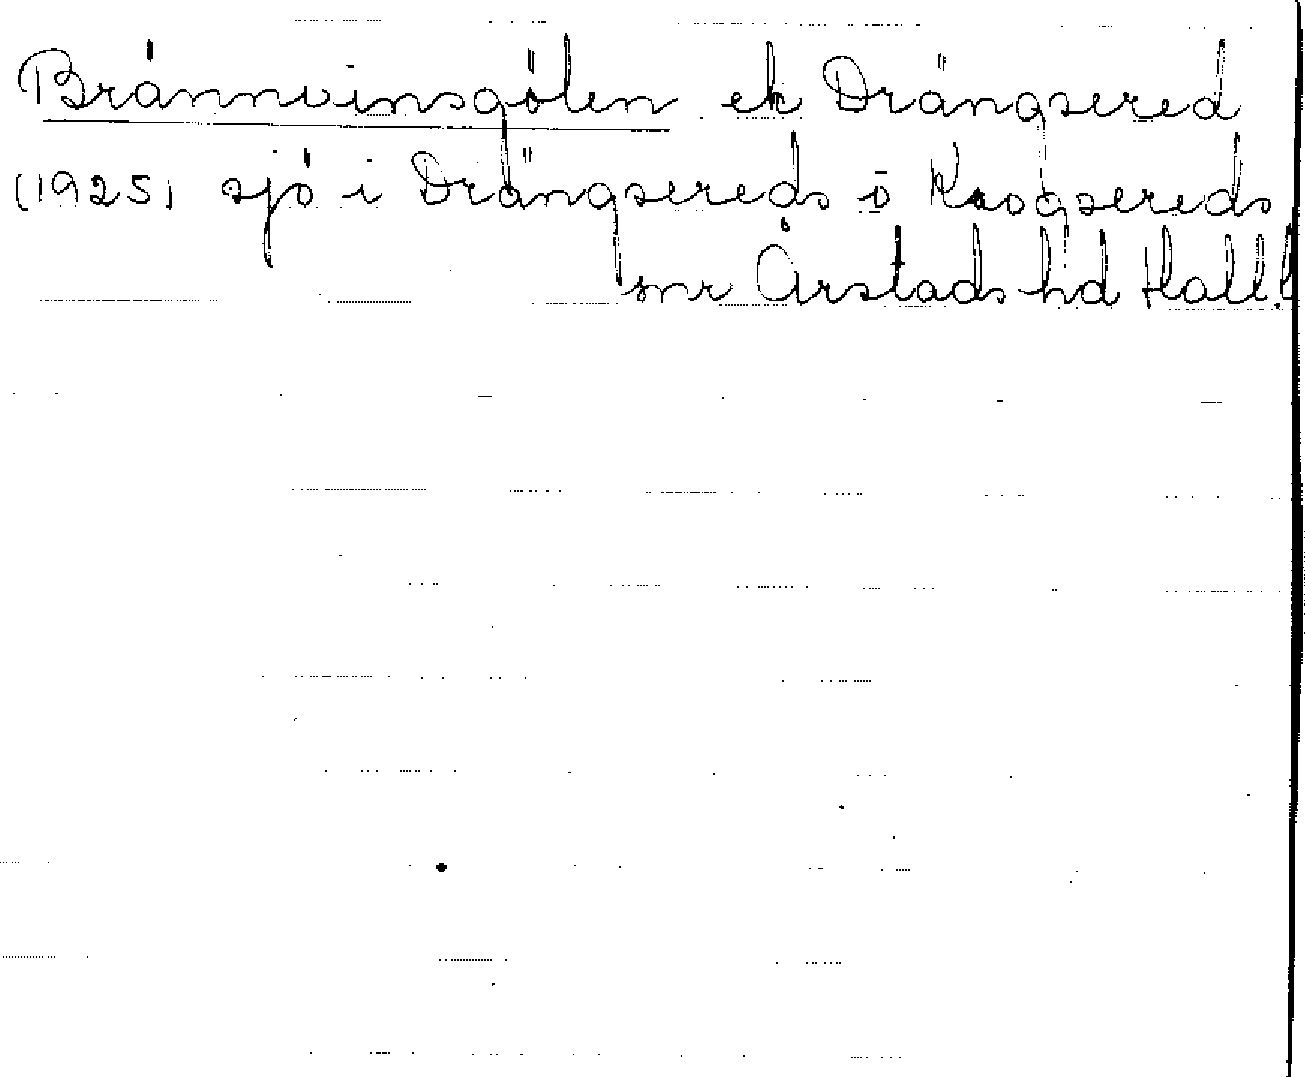 Brännvinsgölen ek Drängsered
(1925) sjö i Drängsereds o Krogsereds
snr Årstads hd Hall.